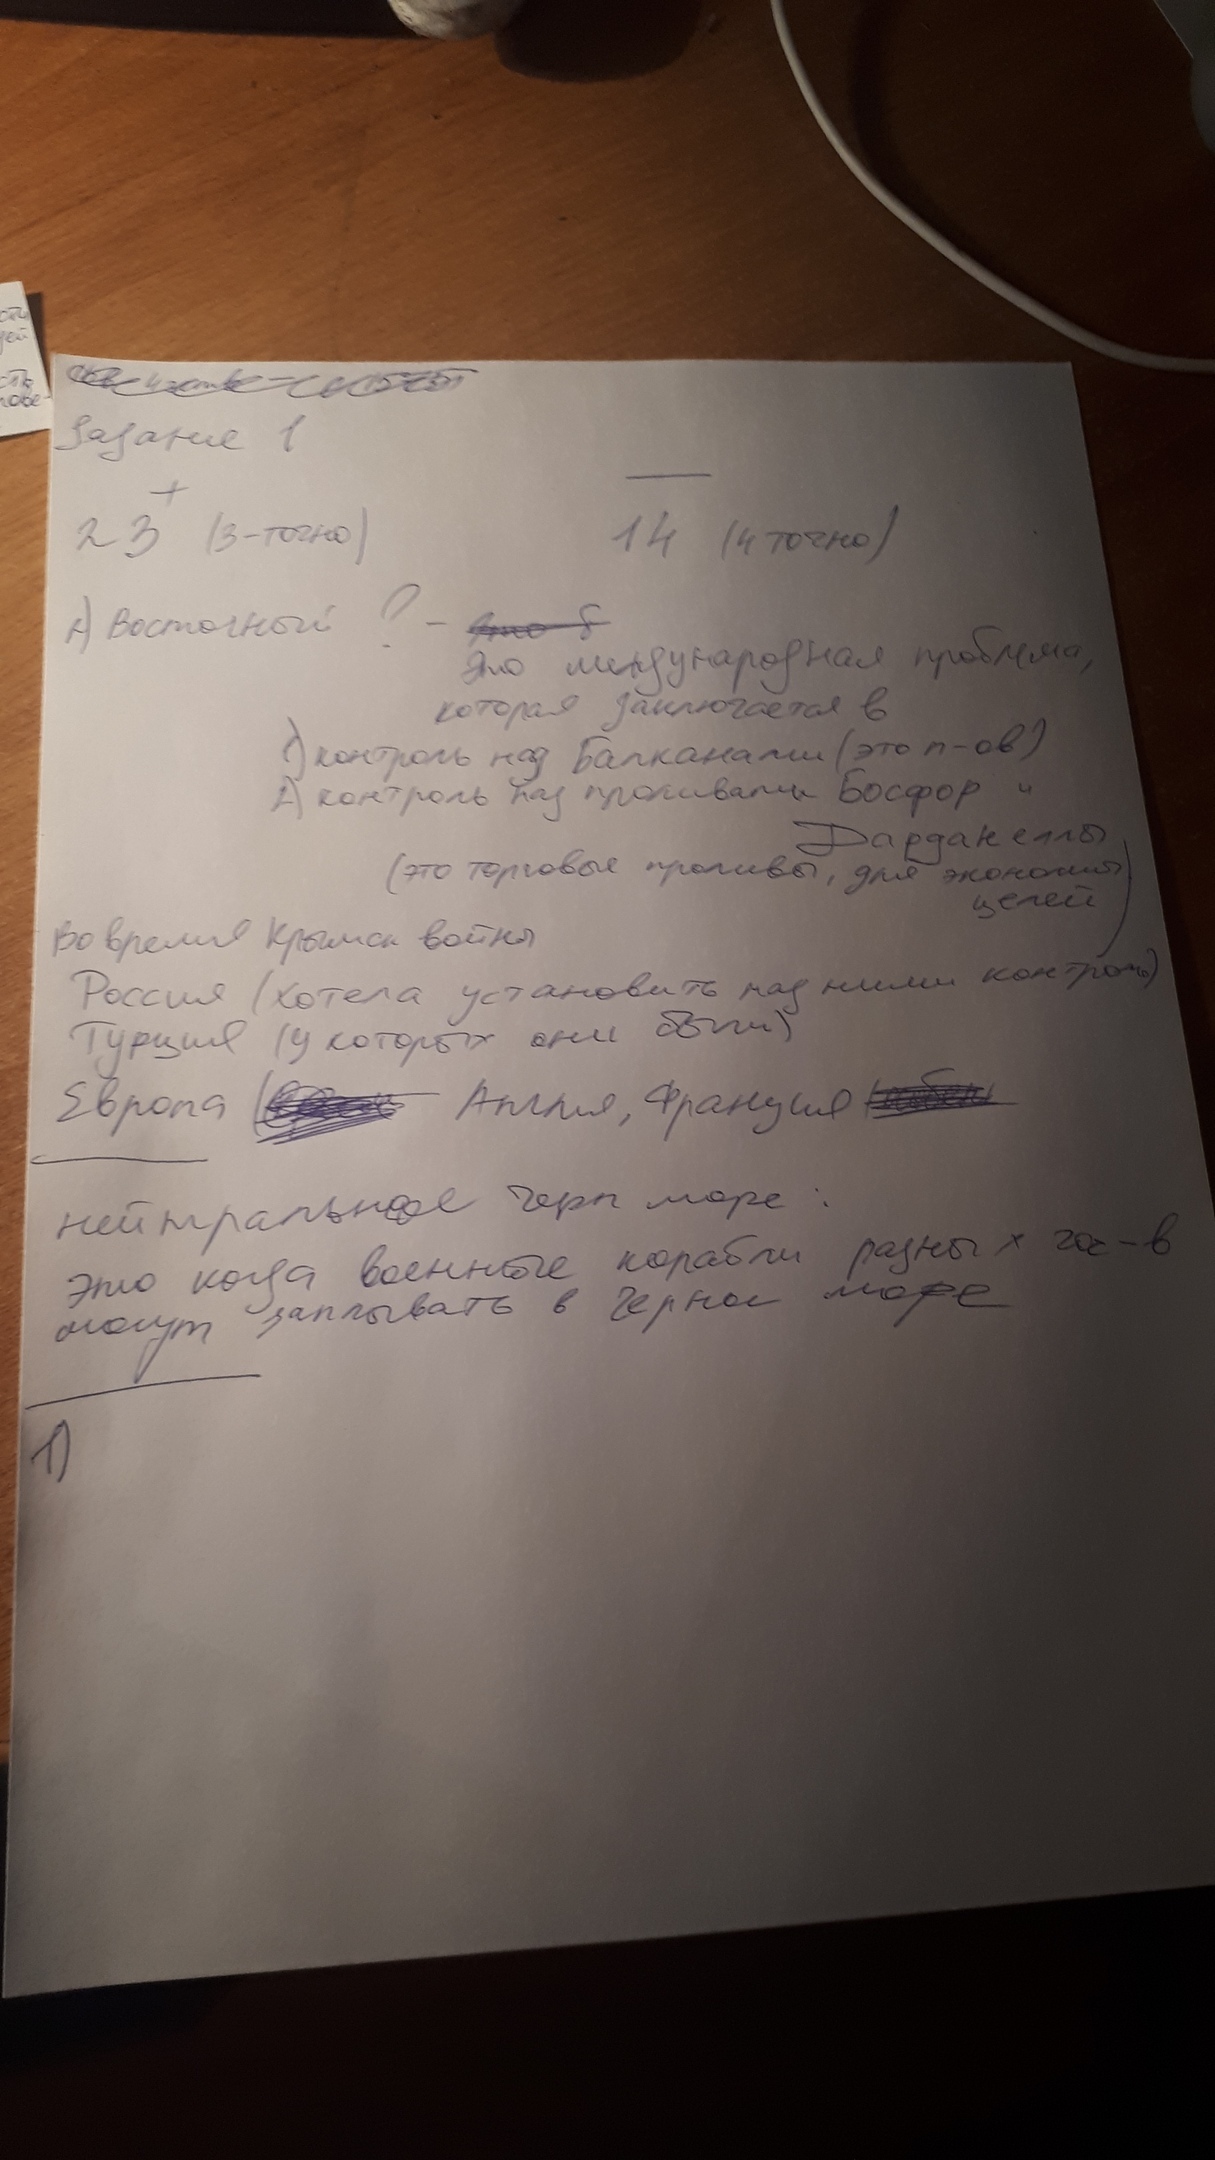 Задание 1
+
23 (3-точно) 14 (4 точно)
А) Восточный ? -
Это международная проблема,
которая заключается в
1) контроль над Балканами (это п-ов)
2) контроль над проливами Босфор и
Дарданеллы
(это торговые проливы, для эконом
целей)
Во время Крымск войны
Россия (хотела установить над ними контроль)
Турция (у которых они были)
Европа ( Англия, Франция
нейтральное черн море :
это когда военные корабли разных гос-в
могут заплывать в Черное море
1)